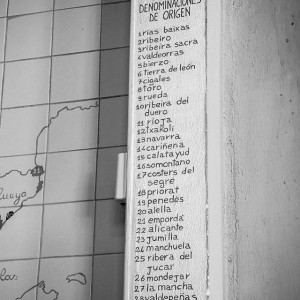 DENOMINACIONES
DE ORIGEN
1 rias baixas
2 ribeiro
3 ribeira sacra
4 valdeorras
5 bierzo
6 tierra de león
7 cigales
8 toro
9 rueda
10 ribera del
duero
11 rioja
12 txakoli
13 navarra
14 cariñena
15 calatayud
16 somontano
17 costers del
segre
18 priorat
19 penedés
20 alella
21 empordá
22 alicante
23 jumilla
24 manchuela
25 ribera del
jucar
26 mondejar
27 la mancha
28 valdepeñas